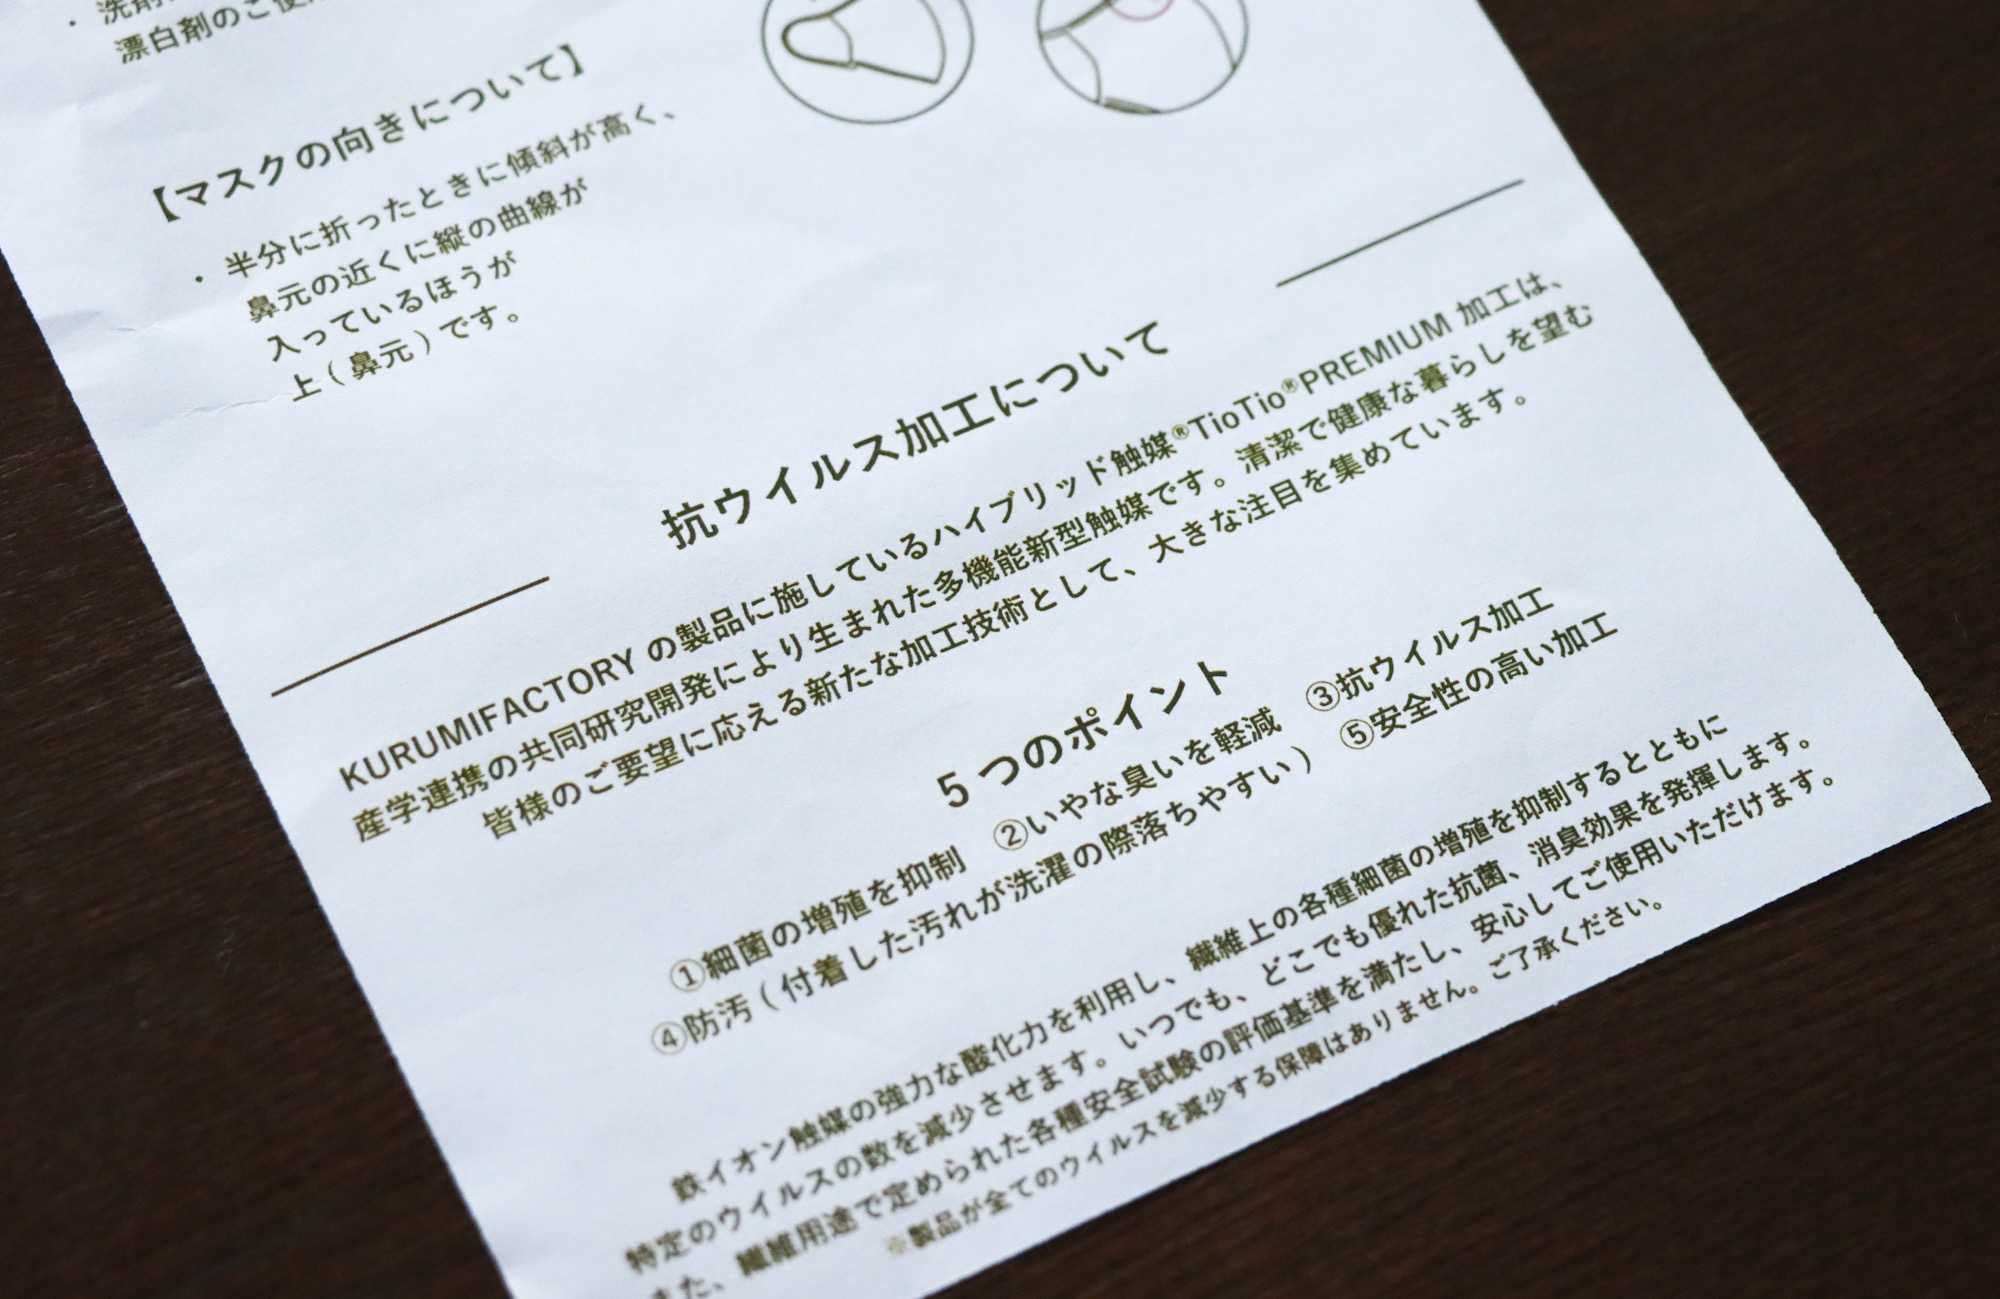 ・洗剤
漂白剤のご使用
【マスクの向きについて】
・半分に折ったときに傾斜が高く、
鼻元の近くに縦の曲線が
入っているほうが
上（鼻元）です。
抗ウイルス加工について
KURUMIFACTORY の製品に施しているハイブリッド触媒®TioTio®PREMIUM 加工は、
産学連携の共同研究開発により生まれた多機能新型触媒です。清潔で健康な暮らしを望む
皆様のご要望に応える新たな加工技術として、大きな注目を集めています。
5 つのポイント
①細菌の増殖を抑制　②いやな臭いを軽減　③抗ウイルス加工
④防汚（付着した汚れが洗濯の際落ちやすい）　⑤安全性の高い加工
鉄イオン触媒の強力な酸化力を利用し、繊維上の各種細菌の増殖を抑制するとともに
特定のウイルスの数を減少させます。いつでも、どこでも優れた抗菌、消臭効果を発揮します。
また、繊維用途で定められた各種安全試験の評価基準を満たし、安心してご使用いただけます。
※製品が全てのウイルスを減少する保障はありません。ご了承ください。